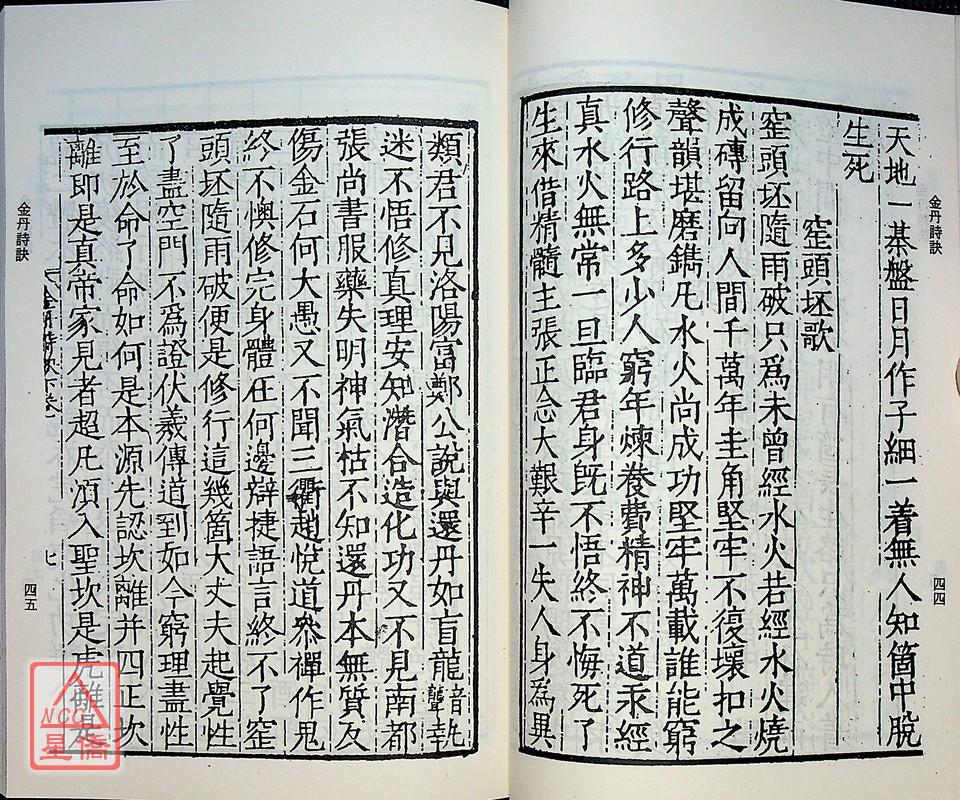 金丹詩訣
四四
天地一棊盤日月作子細一着無人知箇中脫
生死
窰頭坯歌
窰頭坯隨雨破只爲未曾經水火若經水火燒
成磚留向人間千萬年圭角堅牢不復壞扣之
聲韻堪磨鐫凡水火尚成功堅牢萬載誰能窮
修行路上多少人窮年煉養費精神不道永經
真水火無常一旦臨君身既不悟終不悔死了
生來借精髓主張正念大艱辛一失人身爲異
類君不見洛陽富鄭公說與還丹如盲龍音聾執
迷不悟修真理安知潛合造化功又不見南都
張尚書服藥失明神氣枯不知還丹本無質友
傷金石何大愚又不聞三衢趙悅道叅禪作鬼
終不懊修完身體在何邊辯捷語言終不了窰
頭坯隨雨破便是修行這幾箇大丈夫超覺性
了盡空門不爲證伏羲傳道到如今窮理盡性
至於命了命如何是本源先認坎離并四正坎
離即是真帝家見者超凡湏入聖坎是虎離是
金丹詩訣
七
四五
NCC
星僑